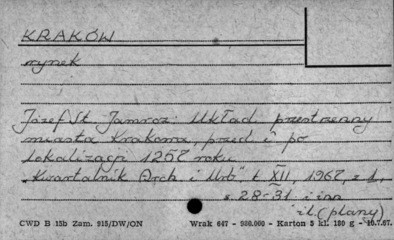 KRAKÓW
rynek
Józef St. Jamroz: Układ przestrzenny
miasta Krakowa, przed i po
lokalizacji 1257 roku
„Kwartalnik Arch. i Urb" t XII, 1967, z 1,
s. 28-31 i inn
il. (plany)
CWD B 15b Zam. 915/DW/ON Wrak 647 - 980.000 - Karton 3 kl. 180 g - 10.7.67.